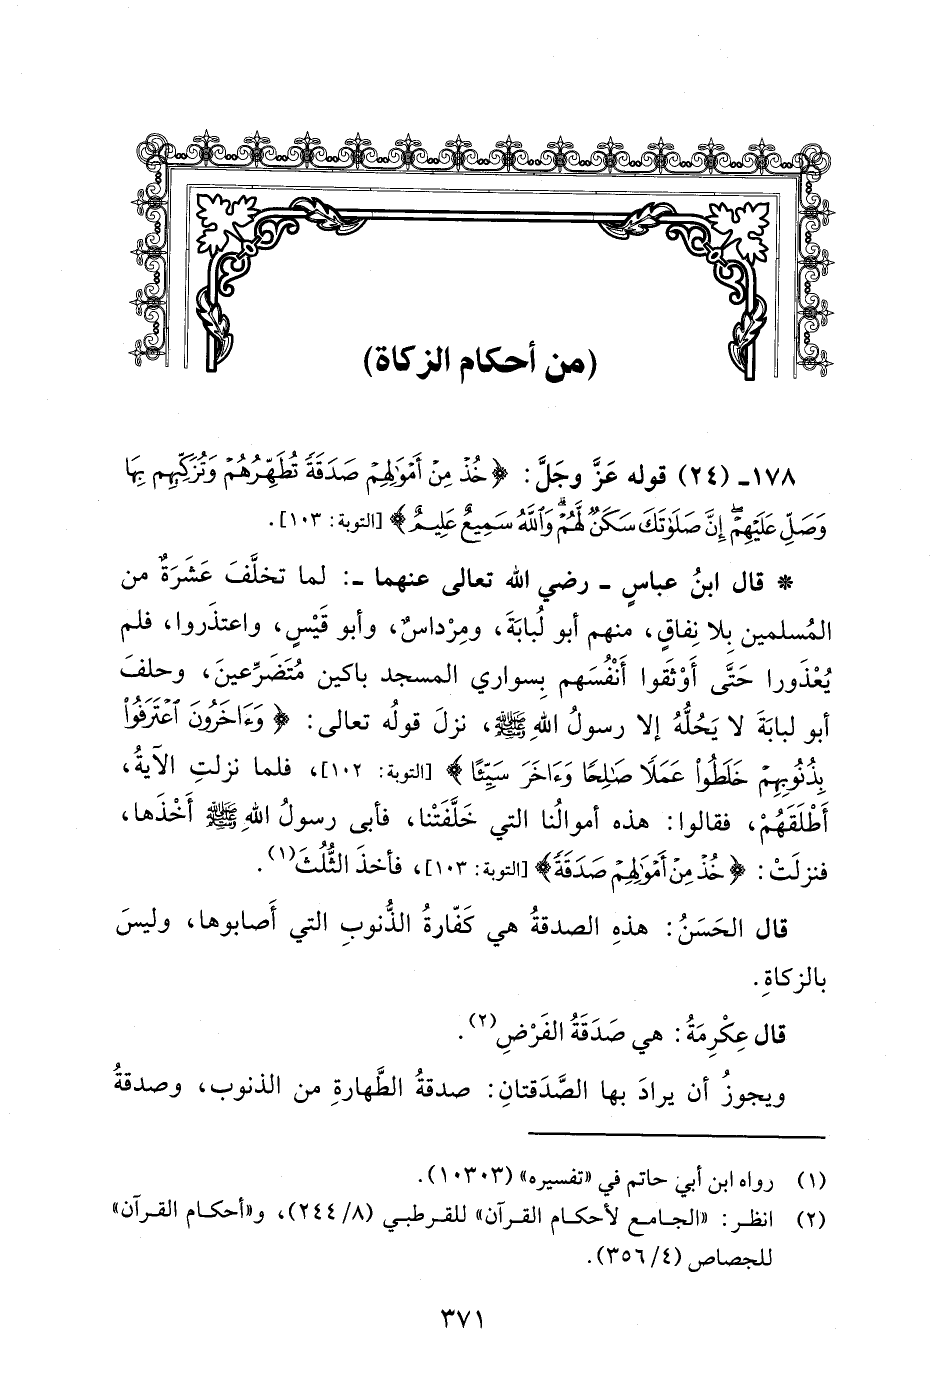 (من أحكام الزكاة)
١٧٨ـ (٢٤) قوله عَزَّ وجَلَّ: ﴿خُذۡ مِنۡ أَمۡوَٰلِهِمۡ صَدَقَةٗ تُطَهِّرُهُمۡ وَتُزَكِّيهِم بِهَا
وَصَلِّ عَلَيۡهِمۡۖ إِنَّ صَلَوٰتَكَ سَكَنٞ لَّهُمۡۗ وَٱللَّهُ سَمِيعٌ عَلِيمٌ﴾ [التوبة: ١٠٣].
* قال ابنُ عباسٍ ـ رضي الله تعالى عنهما ـ: لما تخلَّفَ عَشَرَةٌ من
المُسلمين بِلا نِفاقٍ، منهم أبو لُبابَةَ، ومِرْداسٌ، وأبو قَيْسٍ، واعتذَروا، فلم
يُعْذَورا حَتَّى أَوْثَقوا أَنْفُسَهم بِسواري المسجد باكين مُتَضَرِّعينَ، وحلفَ
أبو لبابَةَ لا يَحُلُّهُ إلا رسولُ اللهِ ﷺ، نزلَ قولُه تعالى: ﴿وَءَاخَرُونَ ٱعۡتَرَفُواْ
بِذُنُوبِهِمۡ خَلَطُواْ عَمَلٗا صَٰلِحٗا وَءَاخَرَ سَيِّئًا﴾ [التوبة: ١٠٢]، فلما نزلتِ الآيةُ،
أَطْلَقَهُمْ، فقالوا: هذه أموالُنا التي خَلَّفَتْنا، فأبى رسولُ اللهِ ﷺ أَخْذَها،
فنزلَتْ: ﴿خُذۡ مِنۡ أَمۡوَٰلِهِمۡ صَدَقَةٗ﴾ [التوبة: ١٠٣]، فأخذَ الثُّلُثَ(١).
قال الحَسَنُ: هذهِ الصدقةُ هي كَفّارةُ الذُّنوبِ التي أَصابوها، وليسَ
بالزكاةِ.
قال عِكْرِمَةُ: هي صَدَقَةُ الفَرْضِ(٢).
ويجوزُ أن يرادَ بها الصَّدَقتانِ: صدقةُ الطَّهارةِ من الذنوب، وصدقةُ
(١) رواه ابن أبي حاتم في «تفسيره» (١٠٣٠٣).
(٢) انظر: «الجامع لأحكام القرآن» للقرطبي (٨/ ٢٤٤)، و«أحكام القرآن»
للجصاص (٤/ ٣٥٦).
٣٧١